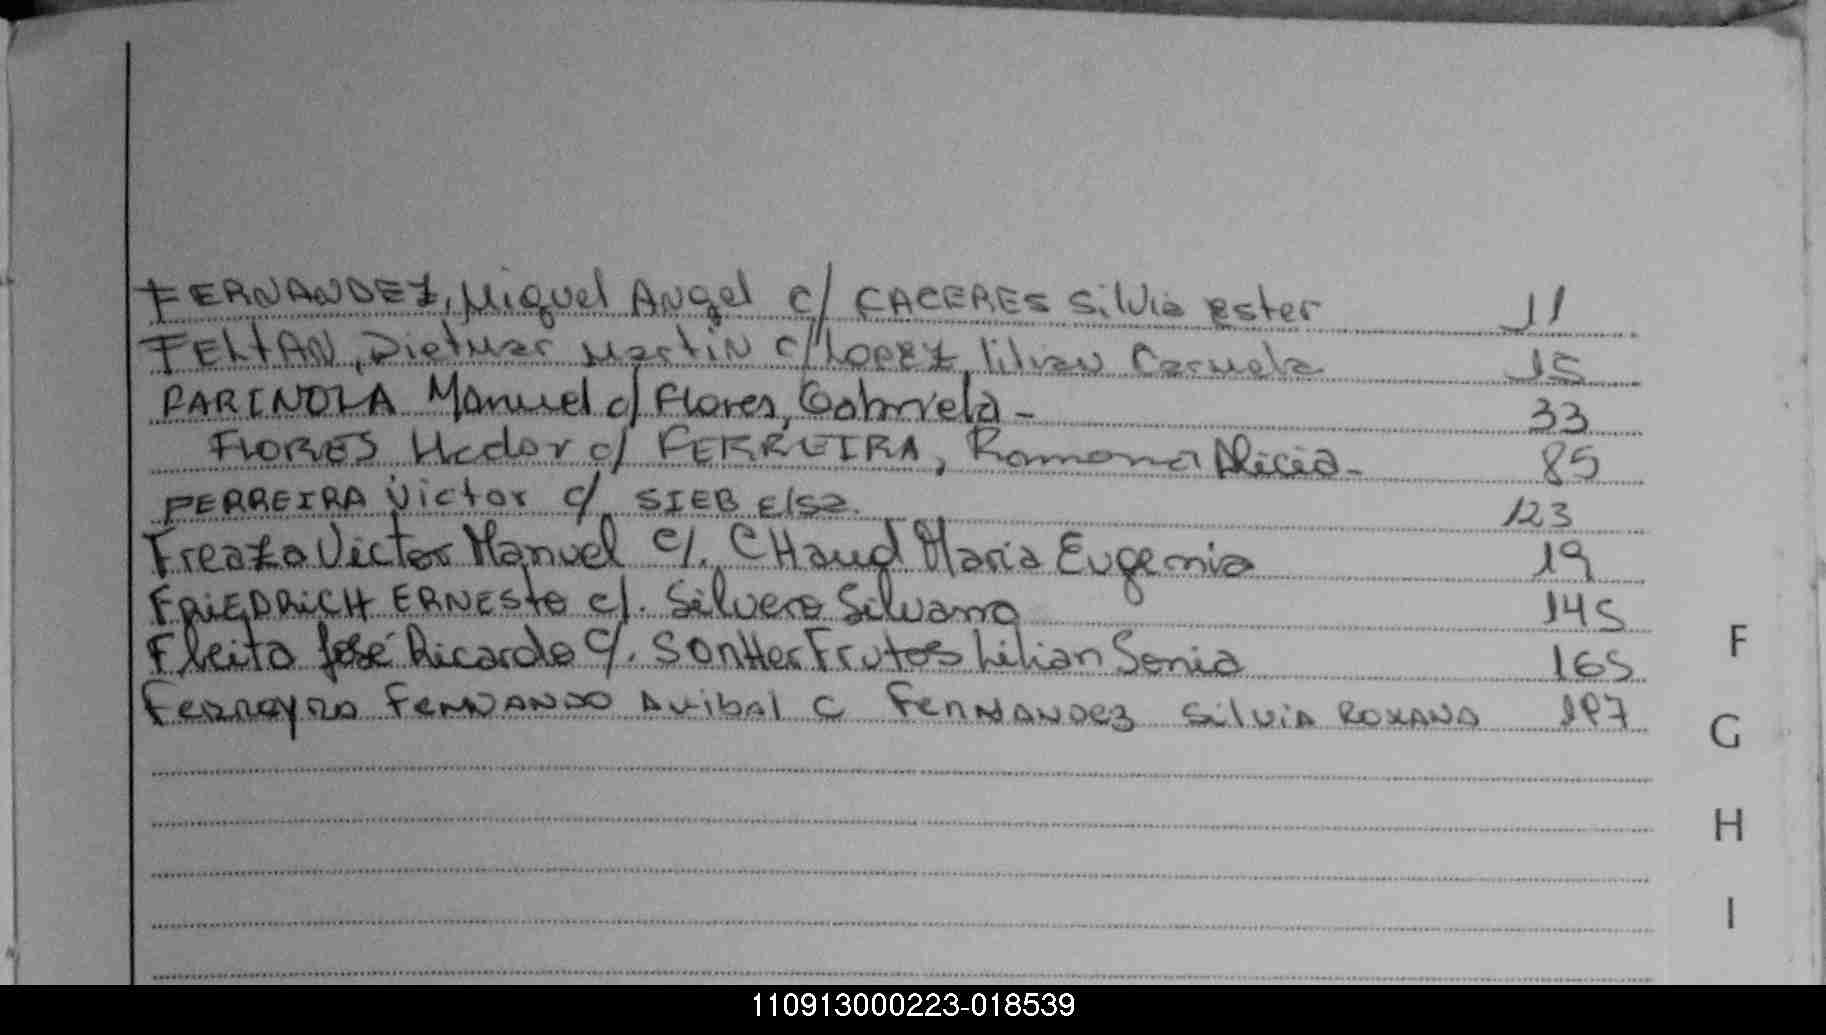 FERNANDEZ, Miguel Angel c/ CACERES Silvia Ester 11
FELTAN, Dietmar Martin c/ LOPEZ, lilian Carmela 15
FARINOLA Manuel c/ Flores, Gabriela - 33
FLORES Hector c/ FERREIRA, Ramona Alicia - 85
FERREIRA Victor c/ SIEB Elsa. 123
Victor Manuel c/. CHaud Maria Eugenia 19
FRiEDRiCH ERNESto c/. Silvero Silvana 145
Fleita José Ricardo c/. Frutos Lilian Sonia 165
Ferreyra FERNANDO Anibal c FERNANDEZ SilviA ROXANA 197
F
G
H
I
110913000223-018539